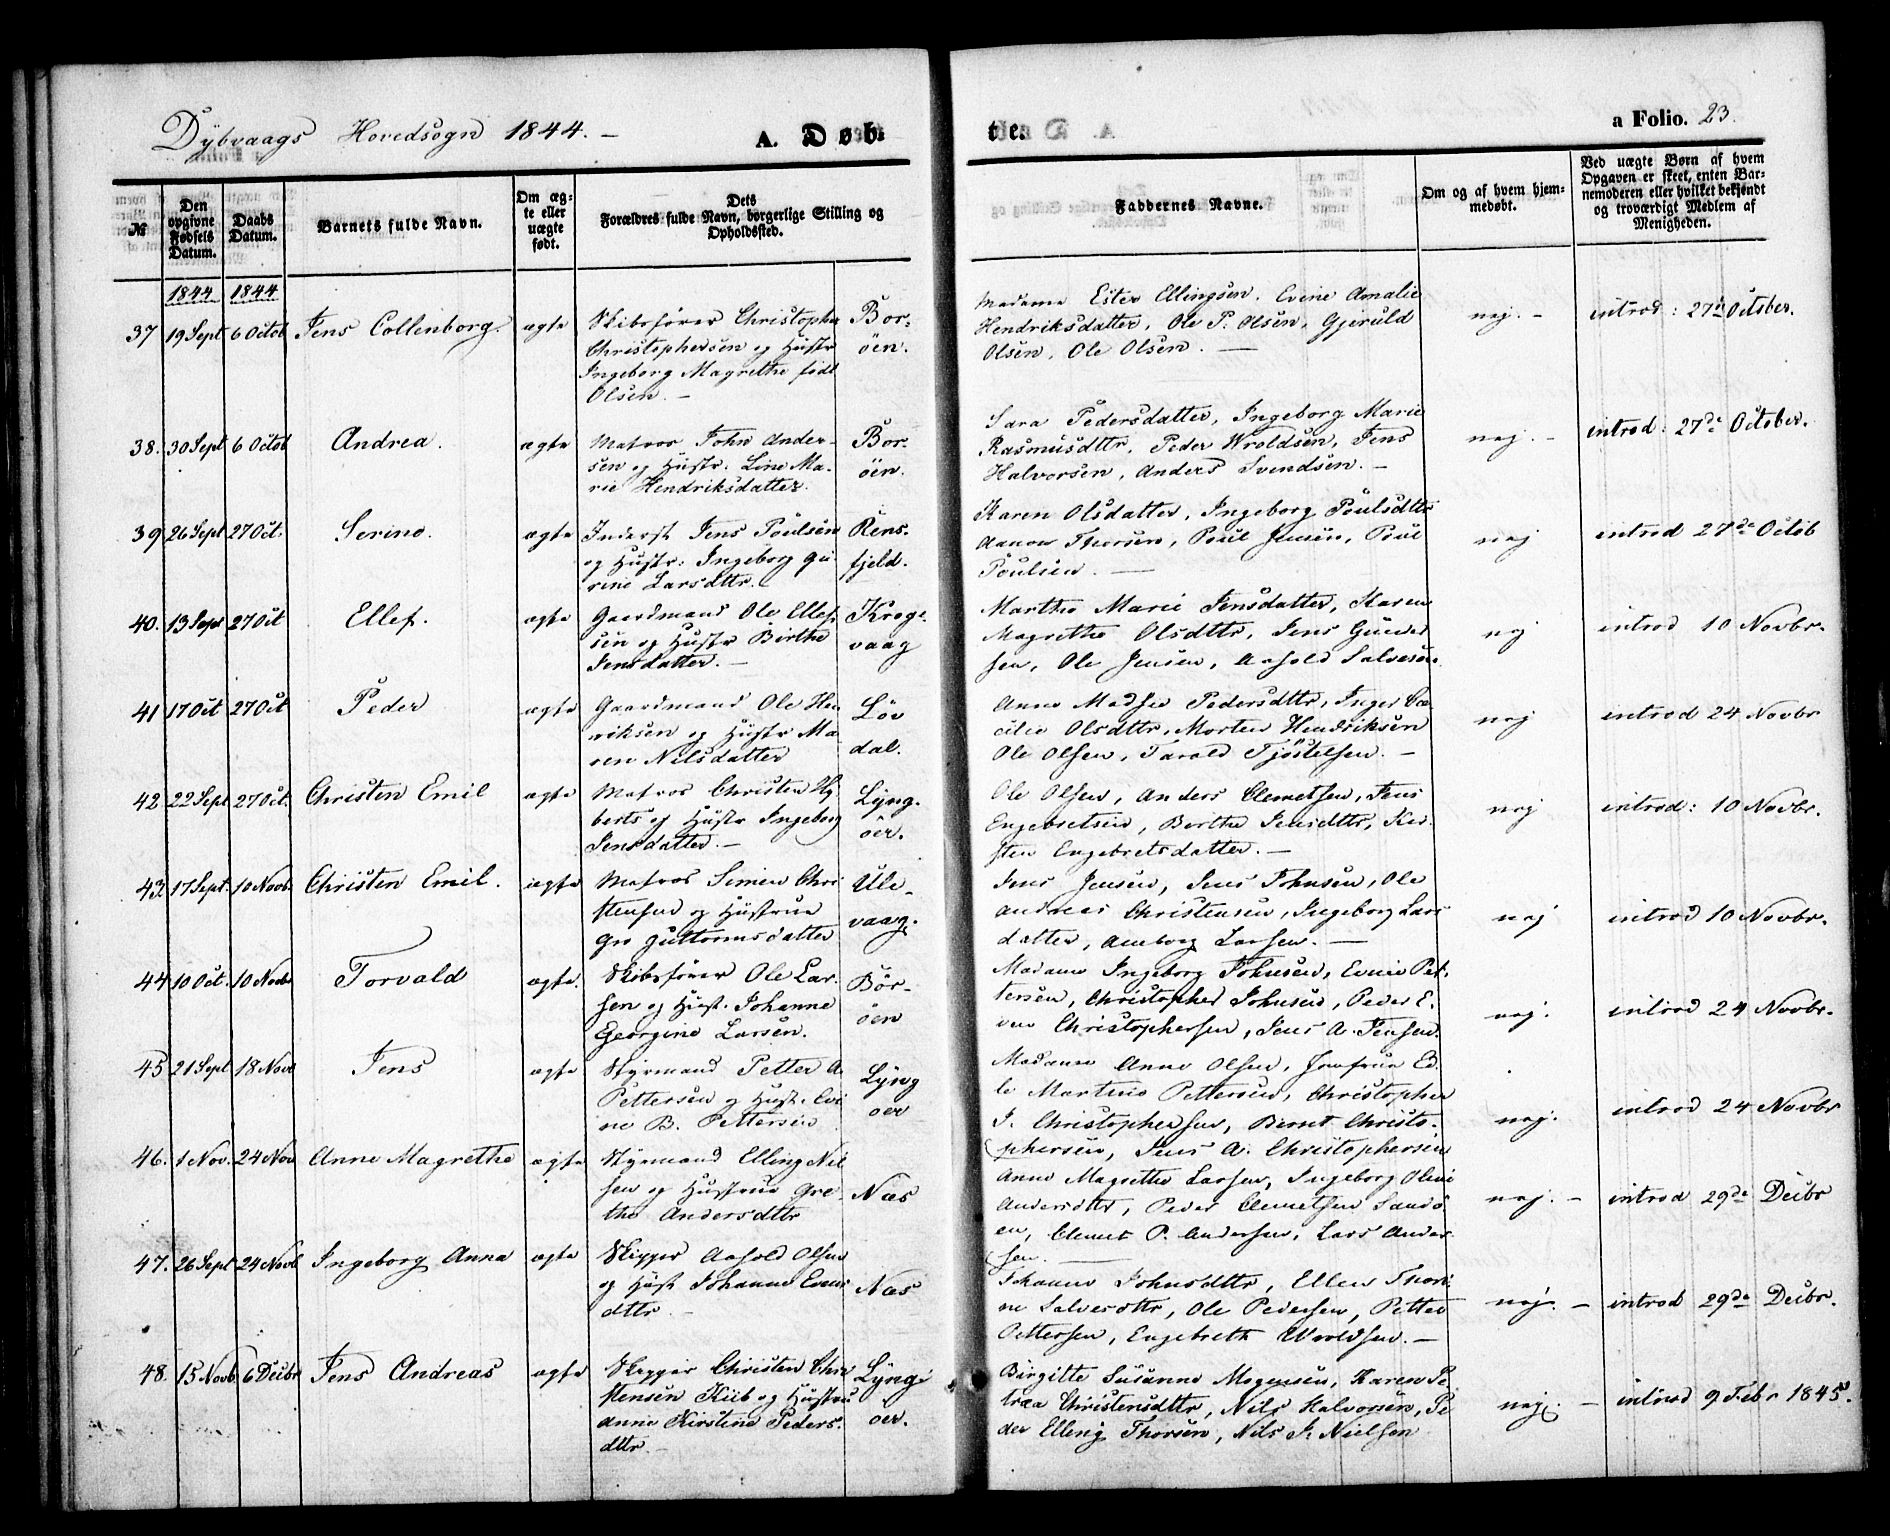 Dÿbvaags Hovedsogn 1844. –
A. Døb
te.
a Folio. 23.
№
Den opgivne Fødsels Datum.
Daabs Datum.
Barnets fulde Navn.
Om ægte eller uægte født.
Dets Forældres fulde Navn, borgerlige Stilling og Opholdssted.
Faddernes Navne.
Om og af hvem hjemmedøbt.
Ved uægte Børn af hvem Opgaven er skeet, enten Barnemoderen eller hvilket bekjendt og troværdigt Medlem af Menigheden.
1844 1844
37 19 Sept 6 Octob Jens Collenborg. ægte
Skibsfører Christopher
Christophersen og Hustr
Ingeborg Magrethe født
Olsen. –
Bor-
öen.
Madame Ester Ellingsen. Evine Amalie
Hendriksdatter, Ole P. Olsen, Gjeruld
Olsen, Ole Olsen. –
nej. –
introd: 27de October.
38. 30 Sept 6 Octob Andrea. ægte
Matros John Ander-
sen og Hustr. Line Ma-
rie Hendriksdatter.
Bor-
öen.
Sara Pedersdatter, Ingeborg Marie
Rasmusdttr, Peder Wroldsen, Jens
Halvorsen, Anders Svendsen. –
nej. –
introd: 27de October.
39 26 Sept 27 Oct. Serine. ægte
Inderst Jens Poulsen
og Hustr: Ingeborg Gu-
rine Larsdttr.
Rens-
fjeld.
Karen Olsdatter, Ingeborg Poulsdttr
Aanon Thorsen, Poul Jensen, Poul
Poulsen. –
nej
introd 27de Octob
40. 13 Sept 27 Oct Ellef. ægte
Gaardmand Ole Ellef-
sen og Hustr Birthe
Jensdatter. –
Krog-
vaag
Marthe Marie Jensdatter, Karen
Magrethe Olsdttr, Jens Gunder
sen, Ole Jensen, Aasold Salvesen.
nej
introd 10 Novbr.
41 17 Oct 27 Oct Peder ægte
Gaardmand Ole Hen
riksen og Hustr Ma-
ren Nilsdatter
Löv
dal.
Anne Madse Pedersdttr, Inger Ce-
cilie Olsdttr, Morten Hendriksen
Ole Olsen, Tarald Tjöstelsen. –
nej
introd 24 Novbr
42 22 Sept 27 Oct. Christen Emil ægte
Matros Christen Hy
berts og Hustr Ingeborg
Jensdatter. –
Lyng-
öer.
Ole Olsen, Anders Clemetsen, Jens
Engebretsen, Berthe Jensdttr, Kir-
sten Engebretsdatter. –
nej
introd: 10 Novbr.
43 17 Sept. 10 Novb. Christen Emil. ægte
Matros Simen Chri
stensen og Hustrue
Gro Guttormsdatter
Ule-
vaag.
Jens Jensen, Jens Johnsen, Ole
Andreas Christensen, Ingeborg Lars
datter, Amborg Larsen. –
nej
introd 10 Novbr.
44 10 Oct. 10 Novb Torvald ægte.
Skibsfører Ole Lar-
sen og Hust. Johanne
Georgine Larsen.
Bör-
öen
Madame Ingeborg Johnsen, Evine Pet-
tersen, Christopher Johnsen, Peder E.
ven Christophersen, Jens A. Jensen.
nej.
introd 24 Novbr.
45 21 Sept 18 Nov Jens ægte
Styrmand Petter A
Pettersen og Hust. Evi
ne B. Pettersen
Lyng
oer
Madame Anne Olsen, Jomfrue Ed-
le Martine Pettersen, Christopher
J. Christophersen, Bernt Christo-
phersen, Jens A. Christophersen
nej.
introd 24 Novbr
46. 1 Nov. 24 Nov Anne Magrethe ægte
Styrmand Elling Nil
sen og Hustrue Gre-
the Andersdttr
Næs
Anne Magrethe Larsen, Ingeborg Oline
Andersdttr, Peder Clemetsen Sandö
en, Clemet P. Andersen, Lars Ander-
sen. –
nej. –
introd 29de Decbr
47. 26 Sept 24 Novb Ingeborg Anna ægte
Skipper Aasold Olsen
og Hust Johanne Evens
dttr –
Næs
Johanne Johnsdttr, Ellen Thori-
ne Salvesdttr, Ole Pedersen, Petter
Pettersen, Engebreth Wroldsen. –
nej. –
introd 29de Decbr.
48. 15 Novb 6 Decbr Jens Andreas ægte
Skipper Christen Chri
stensen Kiib og Hustru
Anne Kirstine Peders-
dttr. –
Lyng-
oer.
Birgitte Susanne Mogensen, Karen Pe
traa Christensdttr, Nils Halvorsen, Pe
der Elling Thorsen, Nils J. Nielsen
nej. –
introd 9 Febr 1845.